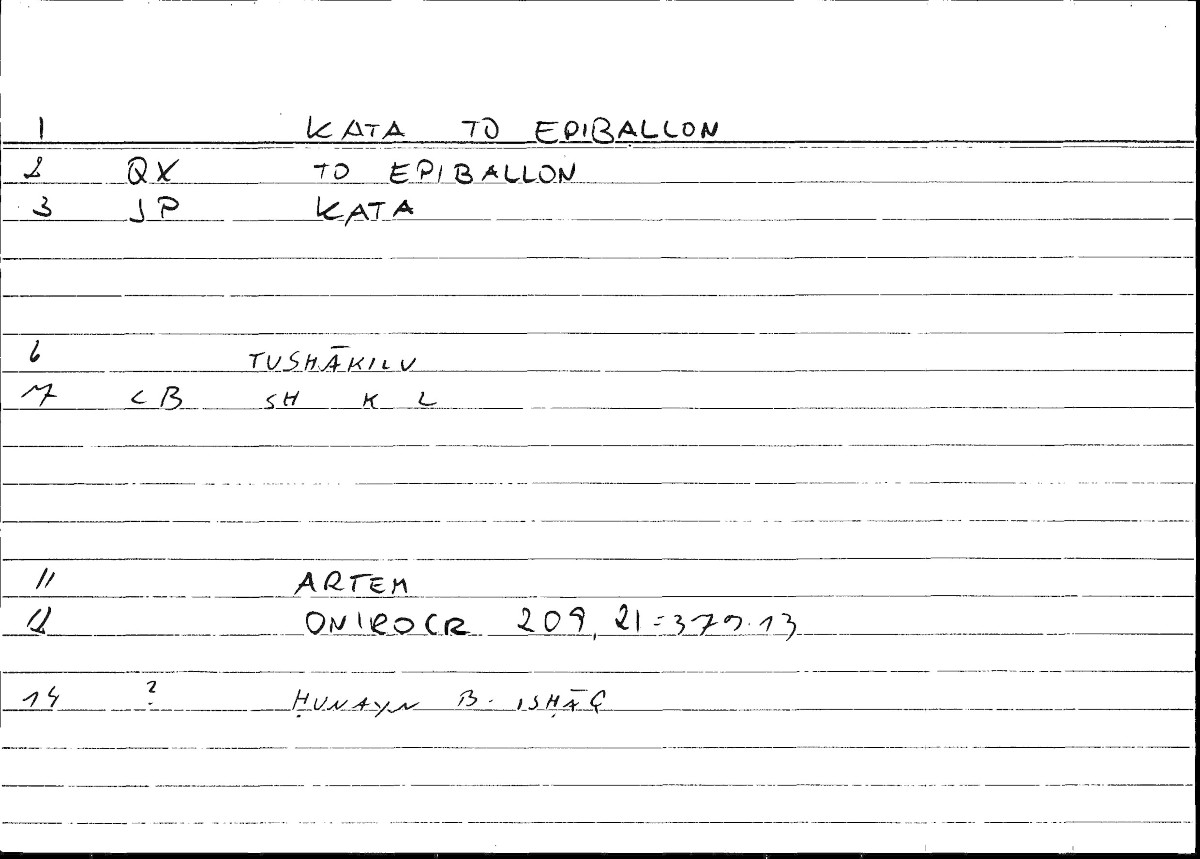 1 KATA TO EPIBALLON
2 QX TO EPIBALLON
3 JP KATA
6 TUSHĀKILU
7 CB SH K L
11 ARTEM
12 ONIROCR 209, 21=379.13
14 ? ḤUNAYN B. ISḤĀQ